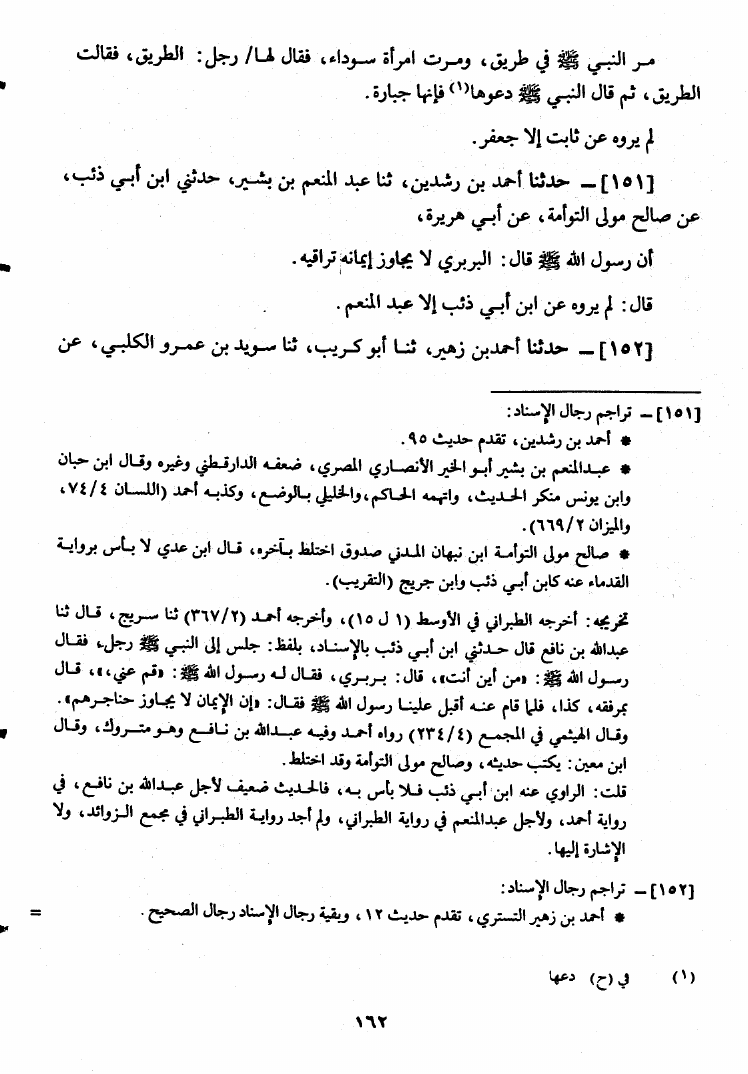 مر النبي ﷺ في طريق، ومرت امرأة سوداء، فقال لها/ رجل: الطريق، فقالت
الطريق، ثم قال النبي ﷺ دعوها(١) فإنها جبارة.
لم يروه عن ثابت إلا جعفر.
[١٥١] ـ حدثنا أحمد بن رشدين، ثنا عبد المنعم بن بشير، حدثني ابن أبي ذئب،
عن صالح مولى التوأمة، عن أبي هريرة،
أن رسول الله ﷺ قال: البربري لا يجاوز إيمانه تراقيه.
قال: لم يروه عن ابن أبي ذئب إلا عبد المنعم.
[١٥٢] ـ حدثنا أحمدبن زهير، ثنا أبو كريب، ثنا سويد بن عمرو الكلبي، عن
[١٥١] ـ تراجم رجال الإسناد:
* أحمد بن رشدين، تقدم حديث ٩٥.
* عبدالمنعم بن بشير أبو الخير الأنصاري المصري، ضعفه الدارقطني وغيره وقال ابن حبان
وابن يونس منكر الحديث، واتهمه الحاكم، والخليلي بالوضع، وكذبه أحمد (اللسان ٧٤/٤،
والميزان ٦٦٩/٢).
* صالح مولى التوأمة ابن نبهان المدني صدوق اختلط بآخره، قال ابن عدي لا بأس برواية
القدماء عنه كابن أبي ذئب وابن جريج (التقريب).
تخريجه: أخرجه الطبراني في الأوسط (١ ل ١٥)، وأخرجه أحمد (٣٦٧/٢) ثنا سريج، قال ثنا
عبدالله بن نافع قال حدثني ابن أبي ذئب بالإسناد، بلفظ: جلس إلى النبي ﷺ رجل، فقال
رسول الله ﷺ: «من أين أنت»، قال: بربري، فقال له رسول الله ﷺ: «قم عني،»، قال
بمرفقه، كذا، فلما قام عنه أقبل علينا رسول الله ﷺ فقال: «إن الإيمان لا يجاوز حناجرهم».
وقال الهيثمي في المجمع (٢٣٤/٤) رواه أحمد وفيه عبدالله بن نافع وهو متروك، وقال
ابن معين: يكتب حديثه، وصالح مولى التوأمة وقد اختلط.
قلت: الراوي عنه ابن أبي ذئب فلا بأس به، فالحديث ضعيف لأجل عبدالله بن نافع، في
رواية أحمد، ولأجل عبدالمنعم في رواية الطبراني، ولم أجد رواية الطبراني في مجمع الزوائد، ولا
الإشارة إليها.
[١٥٢] ـ تراجم رجال الإسناد:
* أحمد بن زهير التستري، تقدم حديث ١٢، وبقية رجال الإسناد رجال الصحيح. =
(١) في (ح) دعها
١٦٢